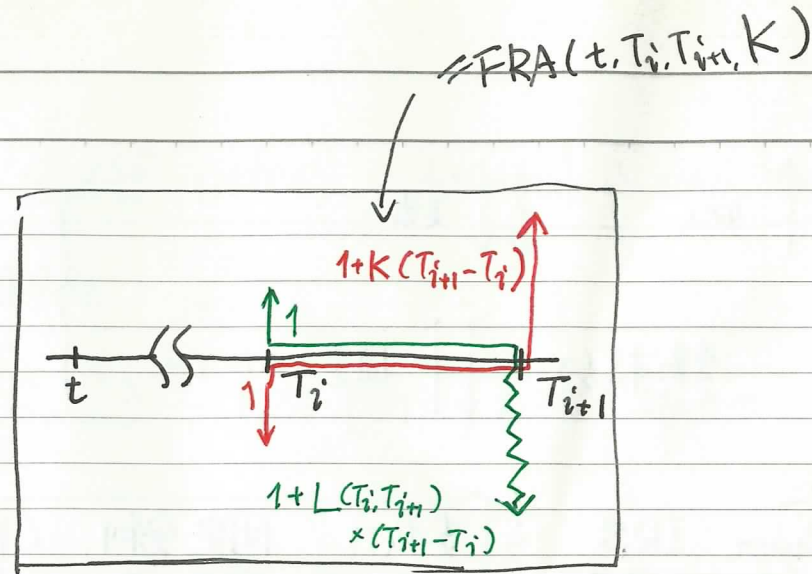 FRA(t, Tᵢ, Tᵢ₊₁, K)
1+K(Tᵢ₊₁-Tᵢ)
1
t
1
Tᵢ
Tᵢ₊₁
1+L(Tᵢ,Tᵢ₊₁)
×(Tᵢ₊₁-Tᵢ)